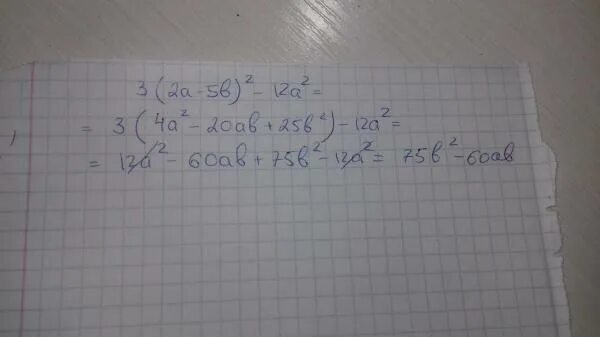 3(2a-5b)²-12a²=
= 3(4a²-20ab+25b²)-12a²=
= 12a²-60ab+75b²-12a²= 75b²-60ab